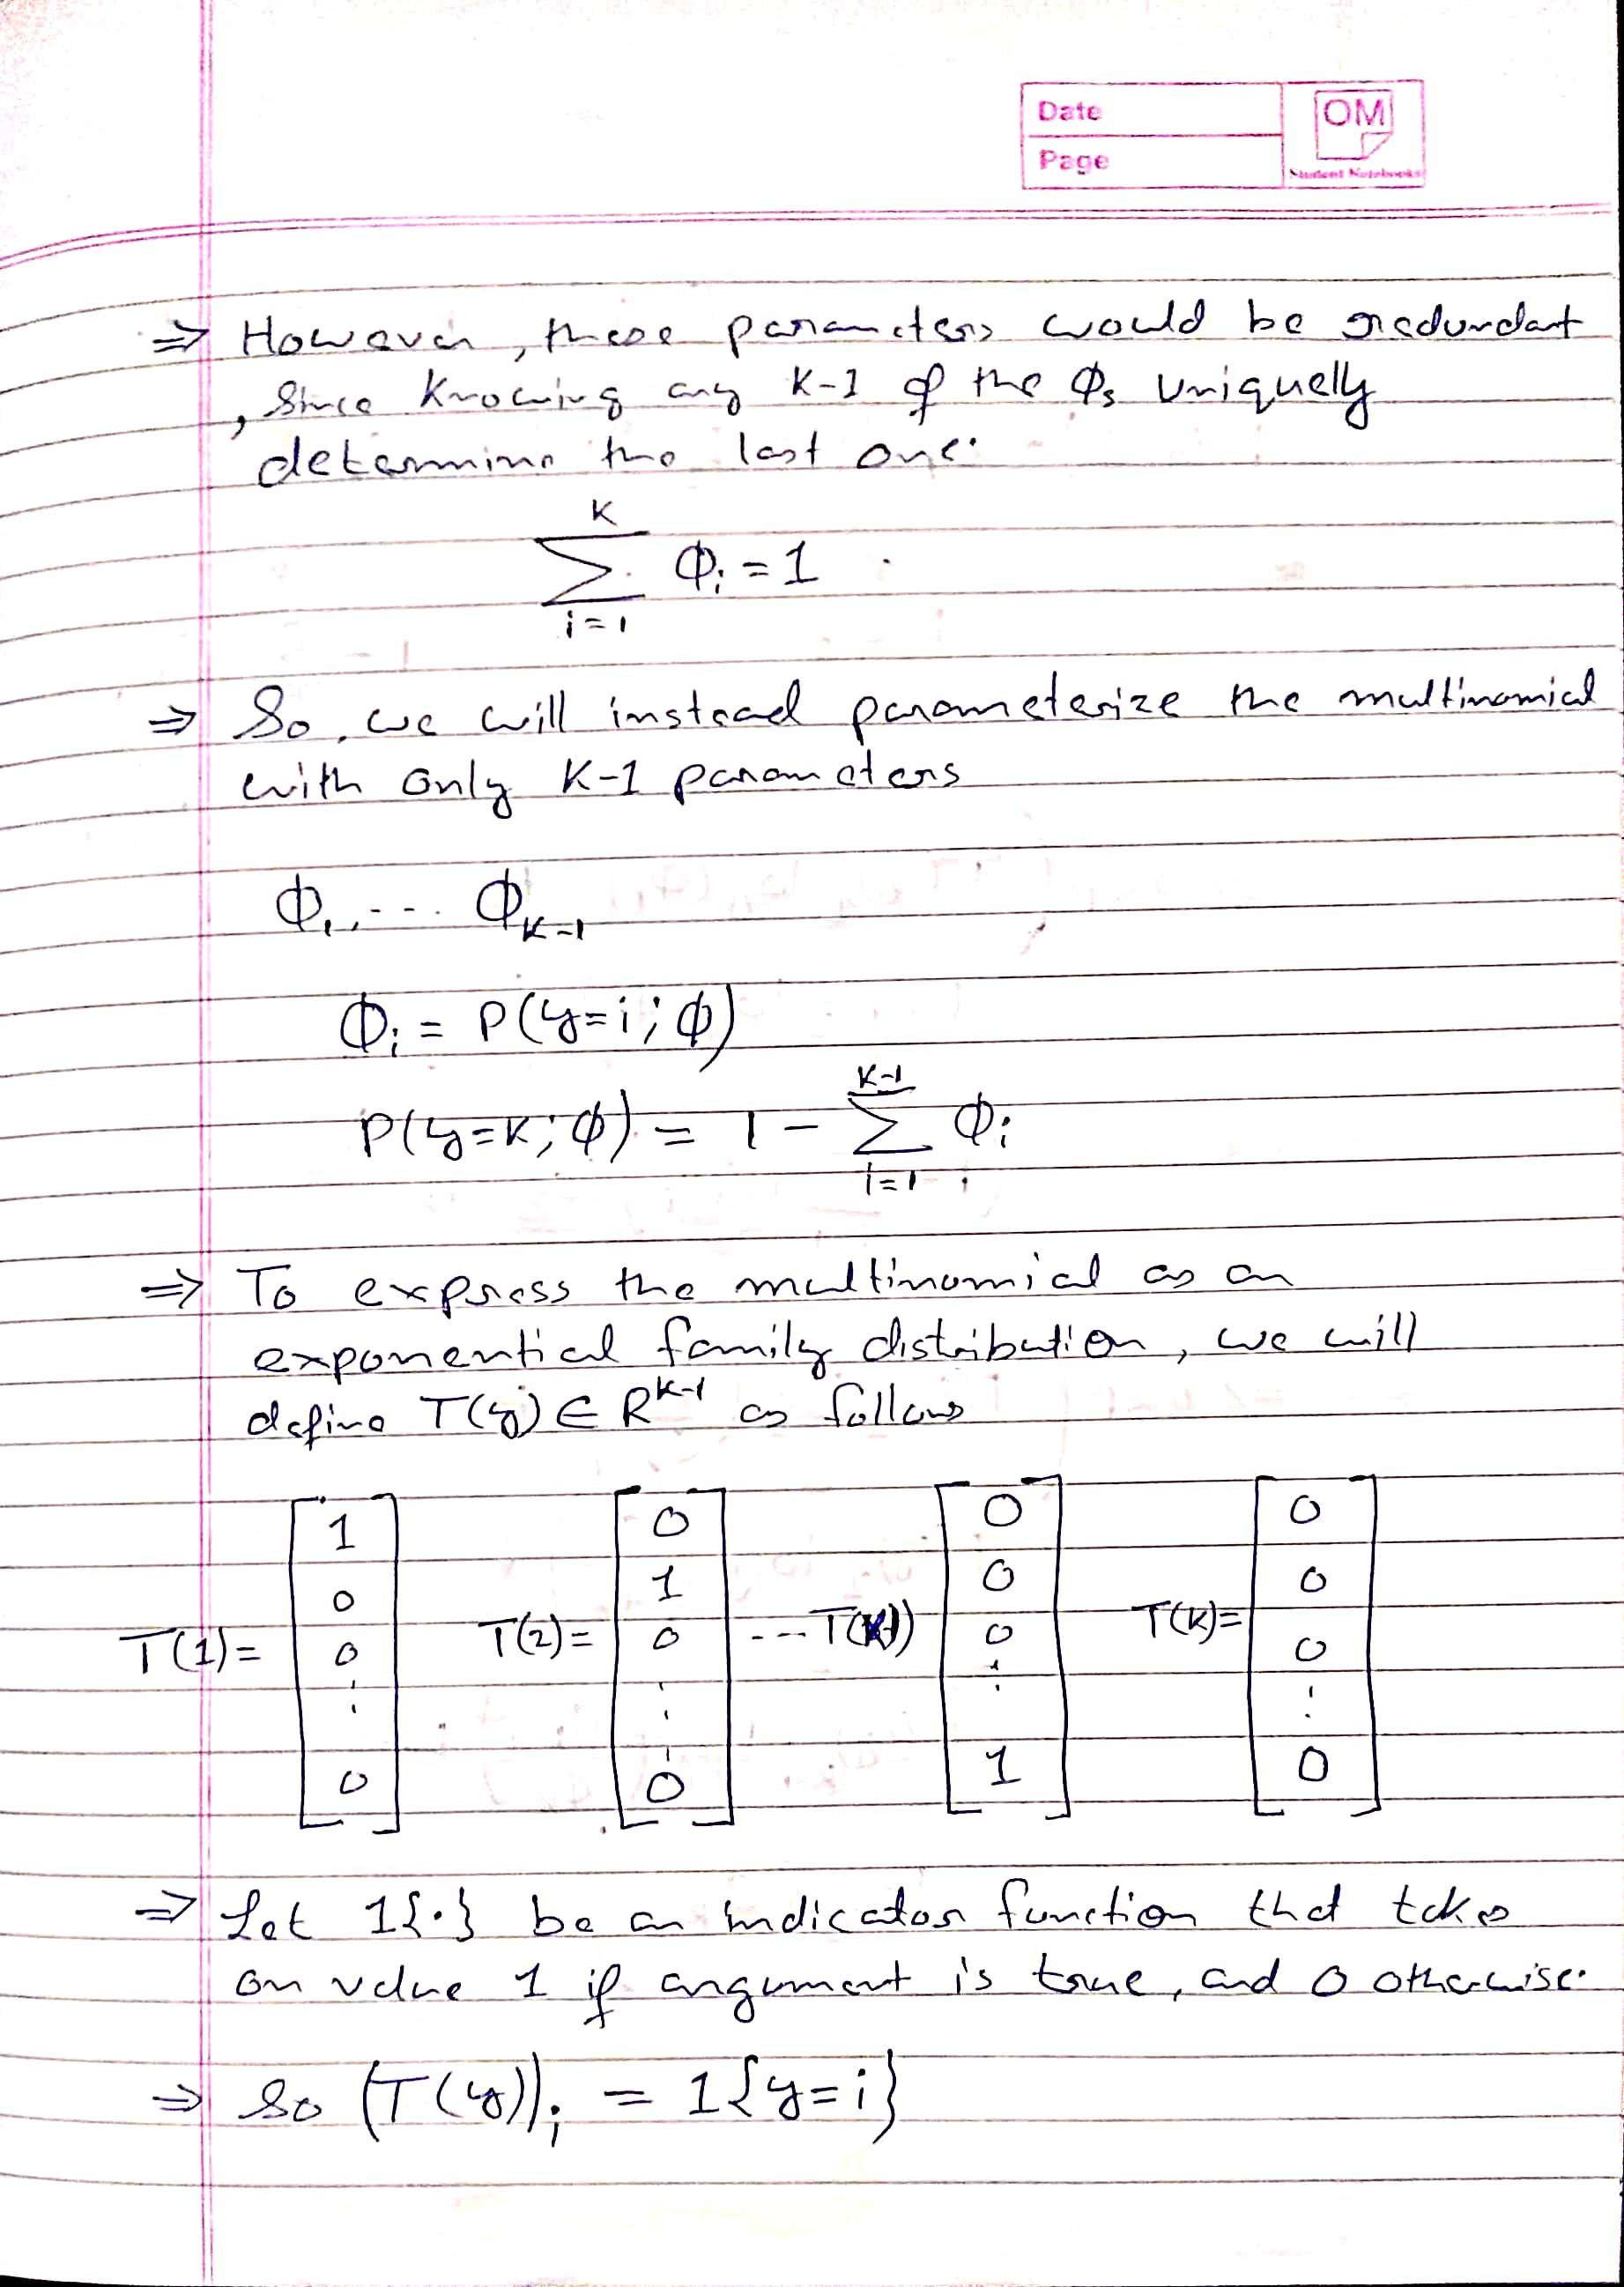 Date
Page
OM
Student Notebooks
⇒ However, these parameters would be redundant
, Since Knowing any K-1 of the Φs Uniquelly
determine the last one.
K
Σ Φi = 1
i=1
⇒ So, we will instead parameterize the multinomial
with only K-1 parameters
Φ1, --- ΦK-1
Φi = P(y=i; Φ)
P(y=K; Φ) = 1 - Σ Φi
K-1
i=1
⇒ To express the multinomial as an
exponential family distribution, we will
define T(y) ∈ R^K-1 as follows
T(1)= [1 0 0 ⋮ 0] T(2)= [0 1 0 ⋮ 0] --- T(K-1) [0 0 0 ⋮ 1] T(K)= [0 0 0 ⋮ 0]
⇒ Let 1{·} be an indicator function that takes
on value 1 if argument is true, and 0 otherwise.
⇒ So (T(y))i = 1{y=i}